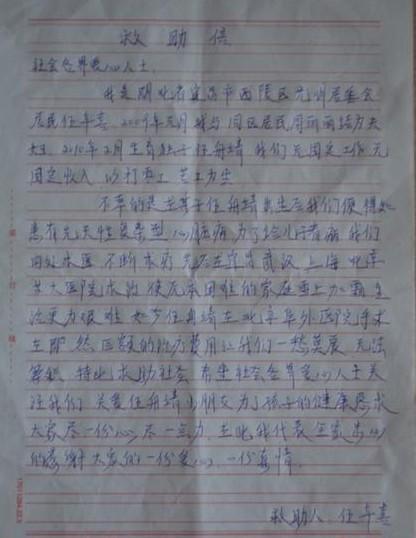 救助信
社会各界爱心人士:
我是湖北省宜昌市西陵区 居委会
居民任 喜, 2009年 月我与同区居民周丽丽结为夫
妻, 2010年2月生育独子任舟靖 我们无固定工作无
固定收入 以打零工 为生
不幸的是在其子任舟靖出生后我们便得知
患有先天性复杂型心脏病 为了给儿子看病 我们
四处求医 不断求药 先后在宜昌 武汉 上海 北京
各大医院求治 使原本困难的家庭雪上加霜 生
活更为艰难 如今任舟靖在北京阜外医院手术
在即 然 巨额的治疗费用让我们一愁莫展 无法
解救 特此求助社会 希望社会各界爱心人士关
注我们 关爱任舟靖小朋友 为了孩子的健康恳求
大家尽一份心 尽一点力 在此我代表全家衷心
的感谢大家的一份爱心 一份真情
救助人: 任 喜